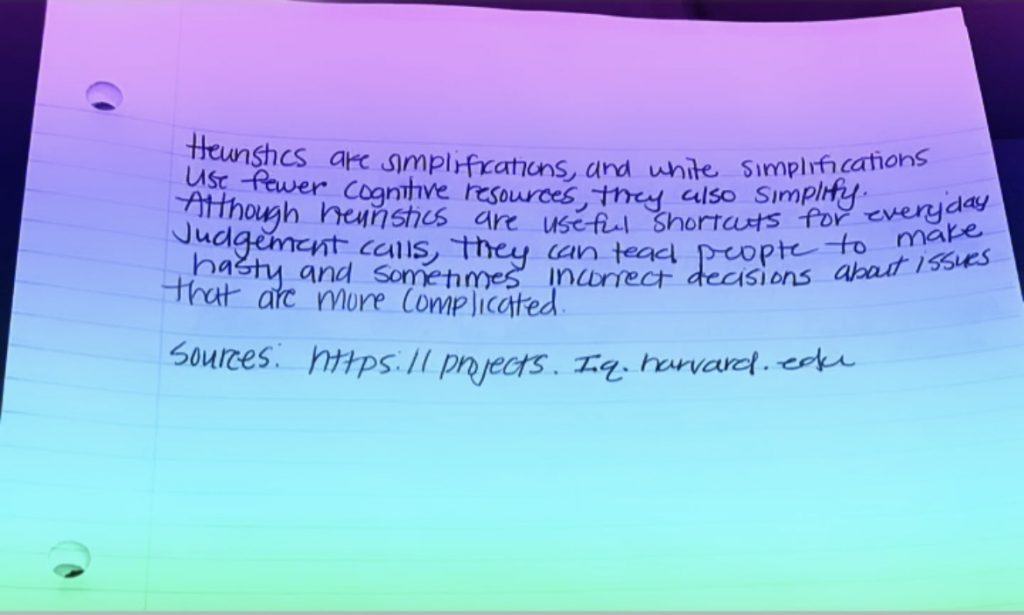 Heuristics are simplifications, and while simplifications
use fewer cognitive resources, they also simplify.
Although heuristics are useful shortcuts for everyday
Judgement calls, they can lead people to make
hasty and sometimes incorrect decisions about issues
that are more complicated.
Sources: https://projects.Iq.harvard.edu